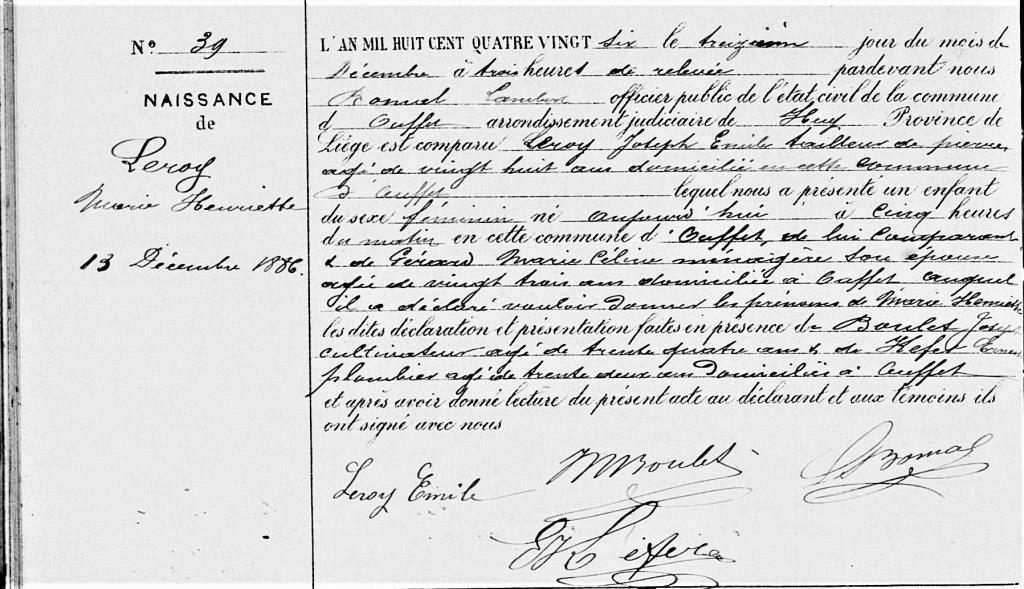 N° 39
NAISSANCE
de
Leroy
Marie Henriette
13 Décembre 1886.
L'AN MIL HUIT CENT QUATRE VINGT six le treizième jour du mois de
Décembre à trois heures de relevée pardevant nous
Lambert officier public de l'état civil de la commune
d' Ouffet arrondissement judiciaire de Huy Province de
Liège est comparu Leroy Joseph Emile tailleur de pierres
agé de vingt huit ans domicilié en cette commune
d' Ouffet lequel nous a présenté un enfant
du sexe féminin né aujourd'hui à cinq heures
du matin en cette commune d' Ouffet, de lui comparant
& de Gérard Marie Céline ménagère son épouse
agée de vingt trois ans domiciliée à Ouffet auquel
il a déclaré vouloir donner les prénoms de Marie Henriette
les dites déclaration et présentation faites en présence de Boulet Joseph
cultivateur agé de trente quatre ans & de
plombier agé de trente deux ans domiciliés à Ouffet
et après avoir donné lecture du présent acte au déclarant et aux témoins ils
ont signé avec nous
Leroy Emile
Boulet
Bomal